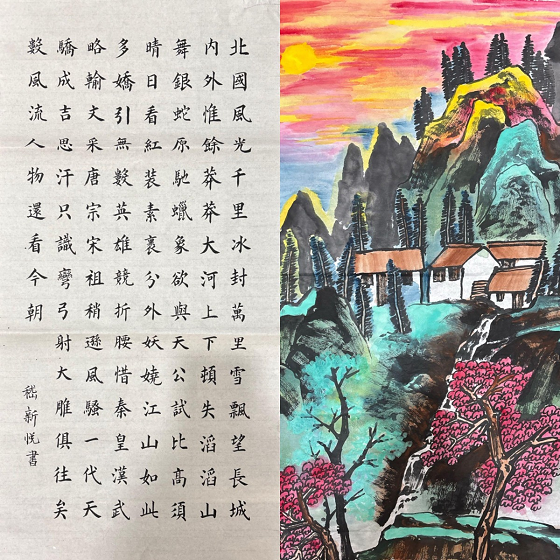 北國風光千里冰封萬里雪飄望長城
内外惟餘莽莽大河上下頓失滔滔山
舞銀蛇原馳蠟象欲與天公試比高須
晴日看紅装素裹分外妖嬈江山如此
多嬌引無數英雄競折腰惜秦皇漢武
略輸文采唐宗宋祖稍遜風騷一代天
驕成吉思汗只識彎弓射大雕俱往矣
數風流人物還看今朝
嵇新悦書